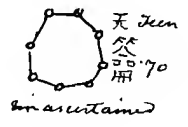 天 Teen
籥 yo
Unascertained